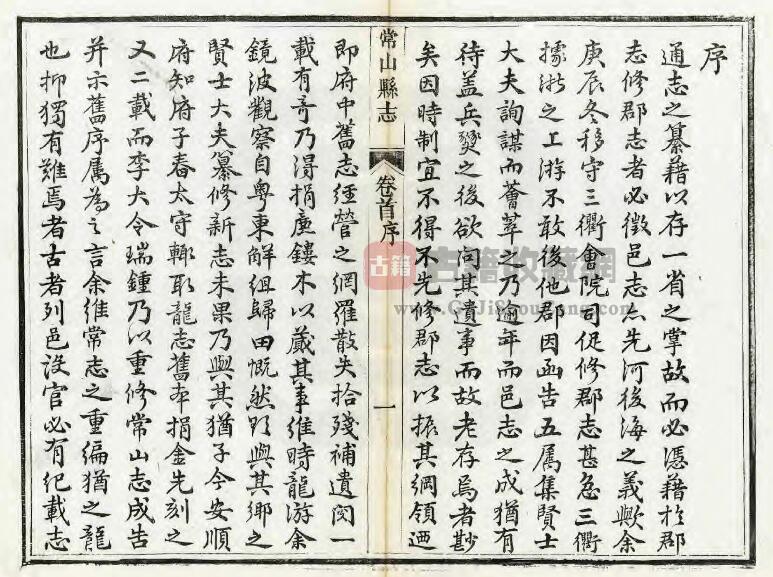 序
通志之纂藉以存一省之掌故而必憑藉於郡
志修郡志者必徵邑志亦先河後海之義歟余
庚辰冬移守三衢會院司促修郡志甚急三衢
據浙之上游不敢後他郡因函告五属集賢士
大夫詢謀而薈萃之乃逾年而邑志之成猶有
待盖兵燹之後欲问其遺事而故老存焉者尠
矣因時制宜不得不先修郡志以振其綱領迺
常山縣志
卷首序
一
即府中舊志经營之網羅散失拾殘補遺閱一
載有奇乃得捐廉鏤木以蕆其事維時龍游余
鏡波觀察自粤東解组歸田慨然欲與其鄉之
賢士大夫纂修新志未果乃與其猶子今安順
府知府子春太守輙取龍志舊本捐金先刻之
又二載而李大令瑞鍾乃以重修常山志成告
并示舊序属為之言余維常志之重編猶之龍
也抑獨有難焉者古者列邑设官必有纪載志
古籍
古籍收藏網
www.GuJiShouCang.com